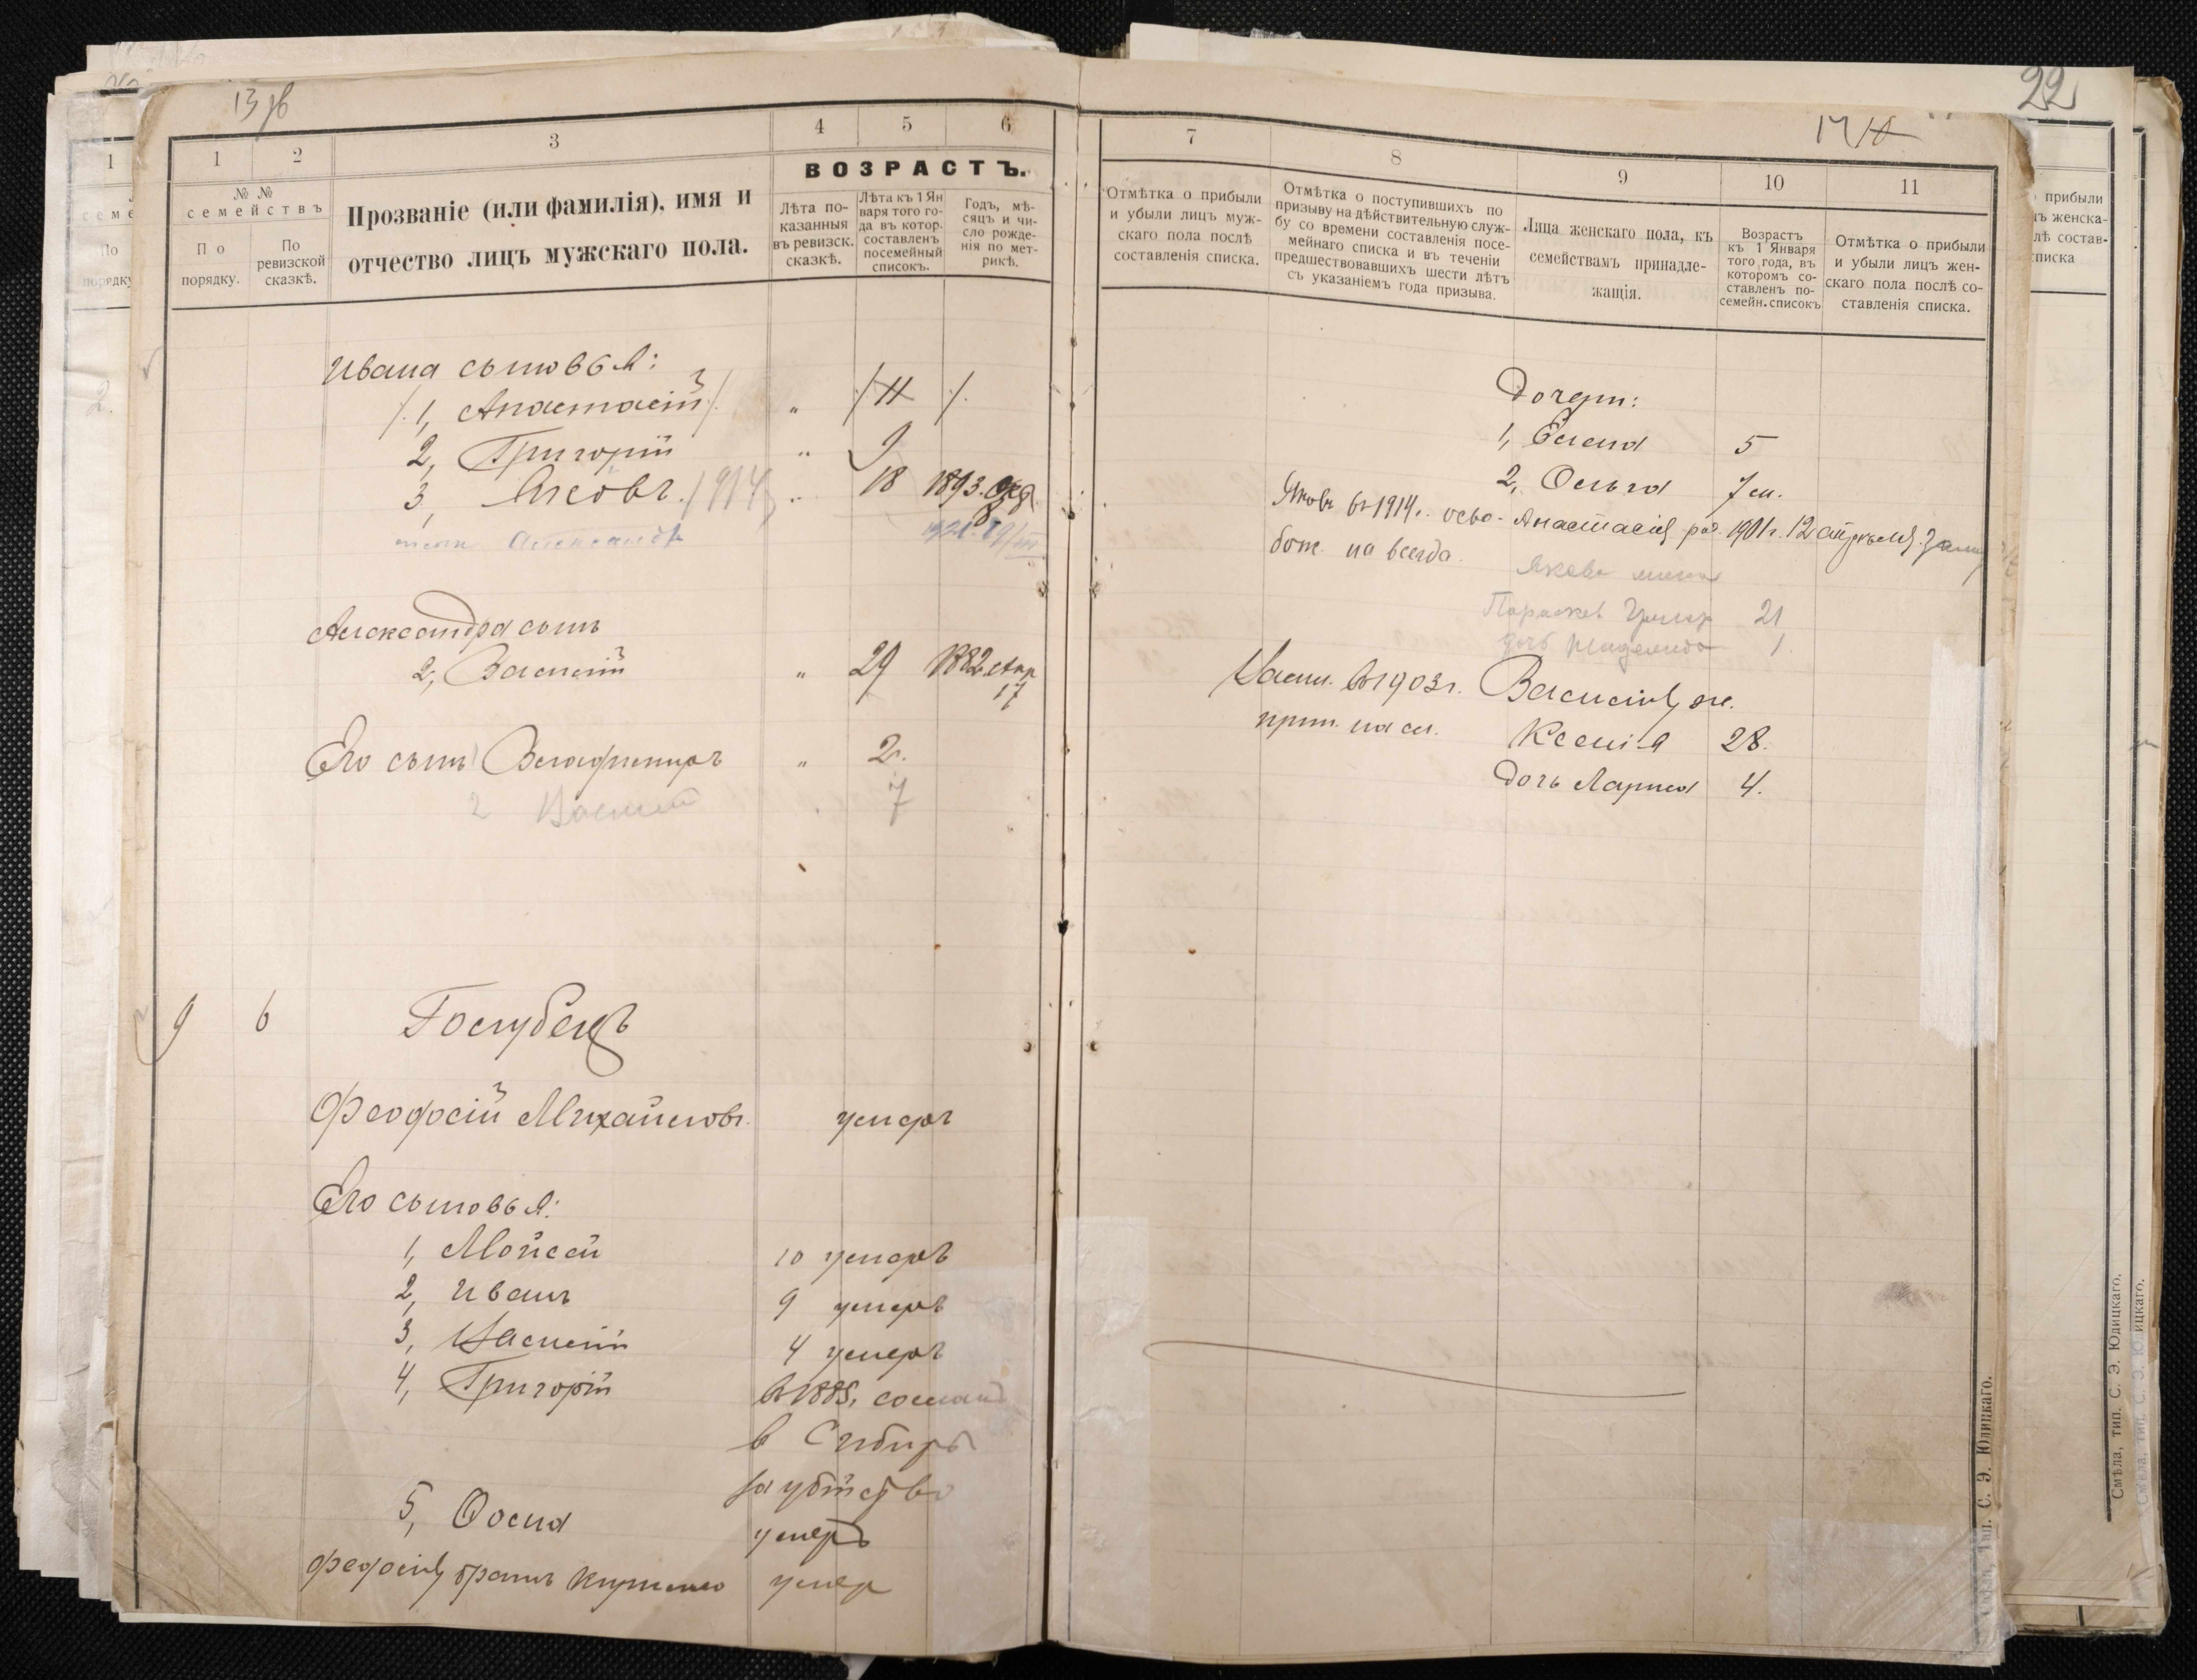 22
1
2
3
4
5
6
№ №
семействъ
По
порядку.
По
ревизской
сказкѣ.
Прозваніе (или фамилія), имя и
отчество лицъ мужскаго пола.
ВОЗРАСТЪ.
Лѣта по-
казанныя
въ ревизск.
сказкѣ.
Лѣта къ 1 Ян
варя того го-
да въ котор.
составленъ
посемейный
списокъ.
Годъ, мѣ-
сяцъ и чи-
сло рожде-
нія по мет-
рикѣ.
Ивана сыновья:
1, Анастасій 11
2, Григорій " 9
3, Яковъ 1914 " 18 1893.
Александръ
Александра сынъ
2, Василій " 29 1882 Апр
17
Его сынъ Владиміръ " 2.
2 Василій 7
9 6 Голубецъ
Феодосій Михайловъ. умеръ
Его сыновья:
1, Мойсей 10 умеръ
2, Иванъ 9 умеръ
3, Василій 4 умеръ
4, Григорій въ 1885, сослан
в Сибирь
за убійство
5, Іосиа умеръ
Федосія братъ Кирилло умер
7
8
9
10
11
Отмѣтка о прибыли
и убыли лицъ муж-
скаго пола послѣ
составленія списка.
Отмѣтка о поступившихъ по
призыву на дѣйствительную служ-
бу со времени составленія посе-
мейнаго списка и въ теченіи
предшествовавшихъ шести лѣтъ
съ указаніемъ года призыва.
Лица женскаго пола, къ
семействамъ принадле-
жащія.
Возрастъ
къ 1 Января
того года, въ
которомъ со-
ставленъ по-
семейн. списокъ
Отмѣтка о прибыли
и убыли лицъ жен-
скаго пола послѣ со-
ставленія списка.
Дочери:
1, Елена 5
2, Ольга 7 м.
Яковъ въ 1914г. осво- Анастасія род. 1901г. 12 апрѣля.
бож. на всегда.
Якова жена
Параскев 21
дочь 1.
Васил. въ 1903г. Василія ж.
прин. на сл. Ксенія 28.
дочь Лариса 4.
Смѣла, тип. С. Э. Юдицкаго.